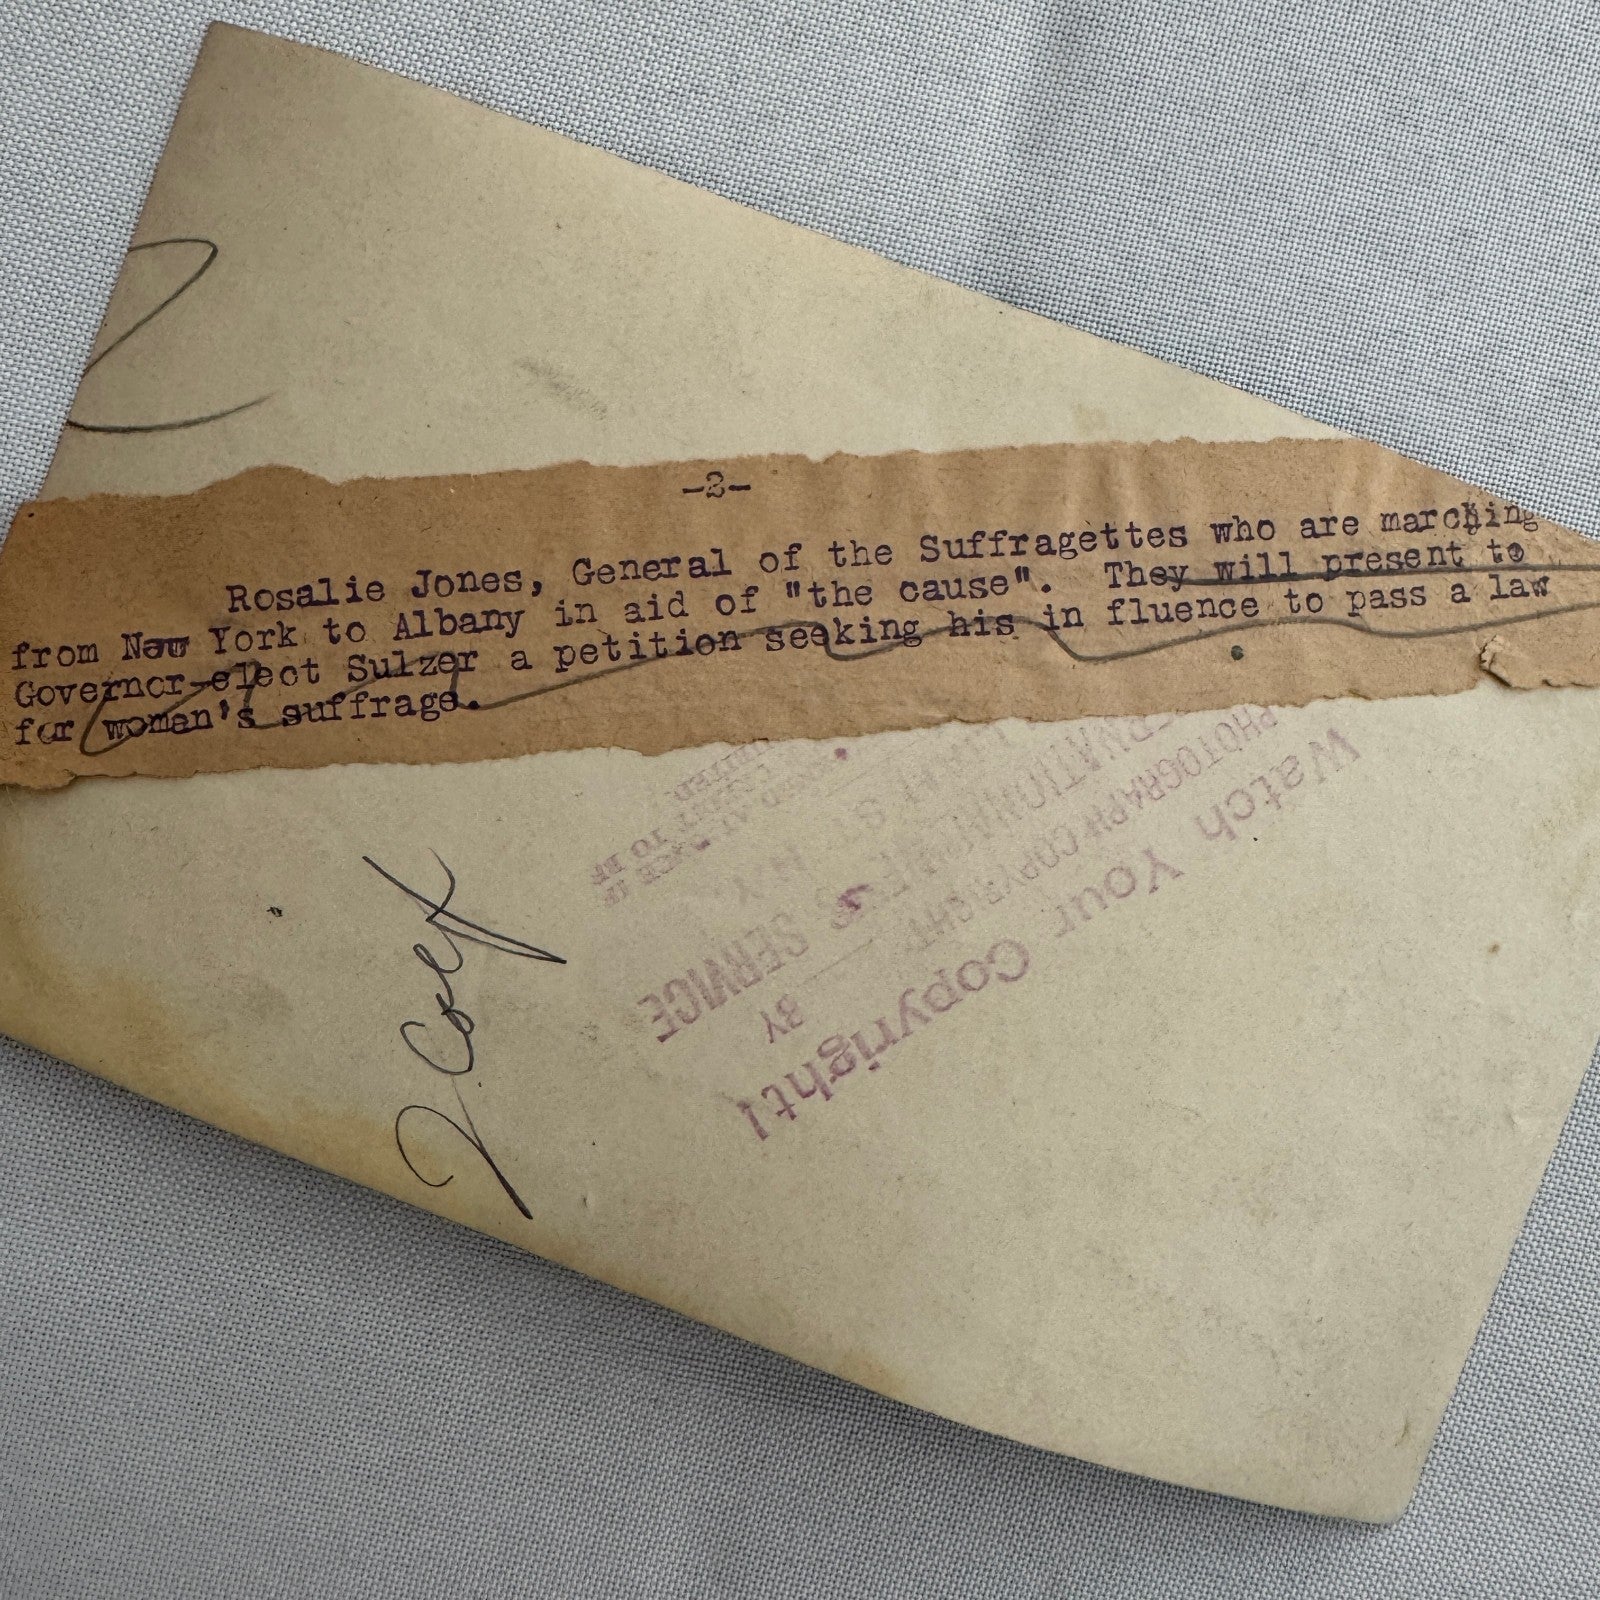 -2-
Rosalie Jones, General of the Suffragettes who are marching
from New York to Albany in aid of "the cause". They will present to
Governor-elect Sulzer a petition seeking his in fluence to pass a law
for woman's suffrage.
Watch Your Copyright!
PHOTOGRAPH COPYRIGHT
BY
SERVICE
N.Y.
TO BE